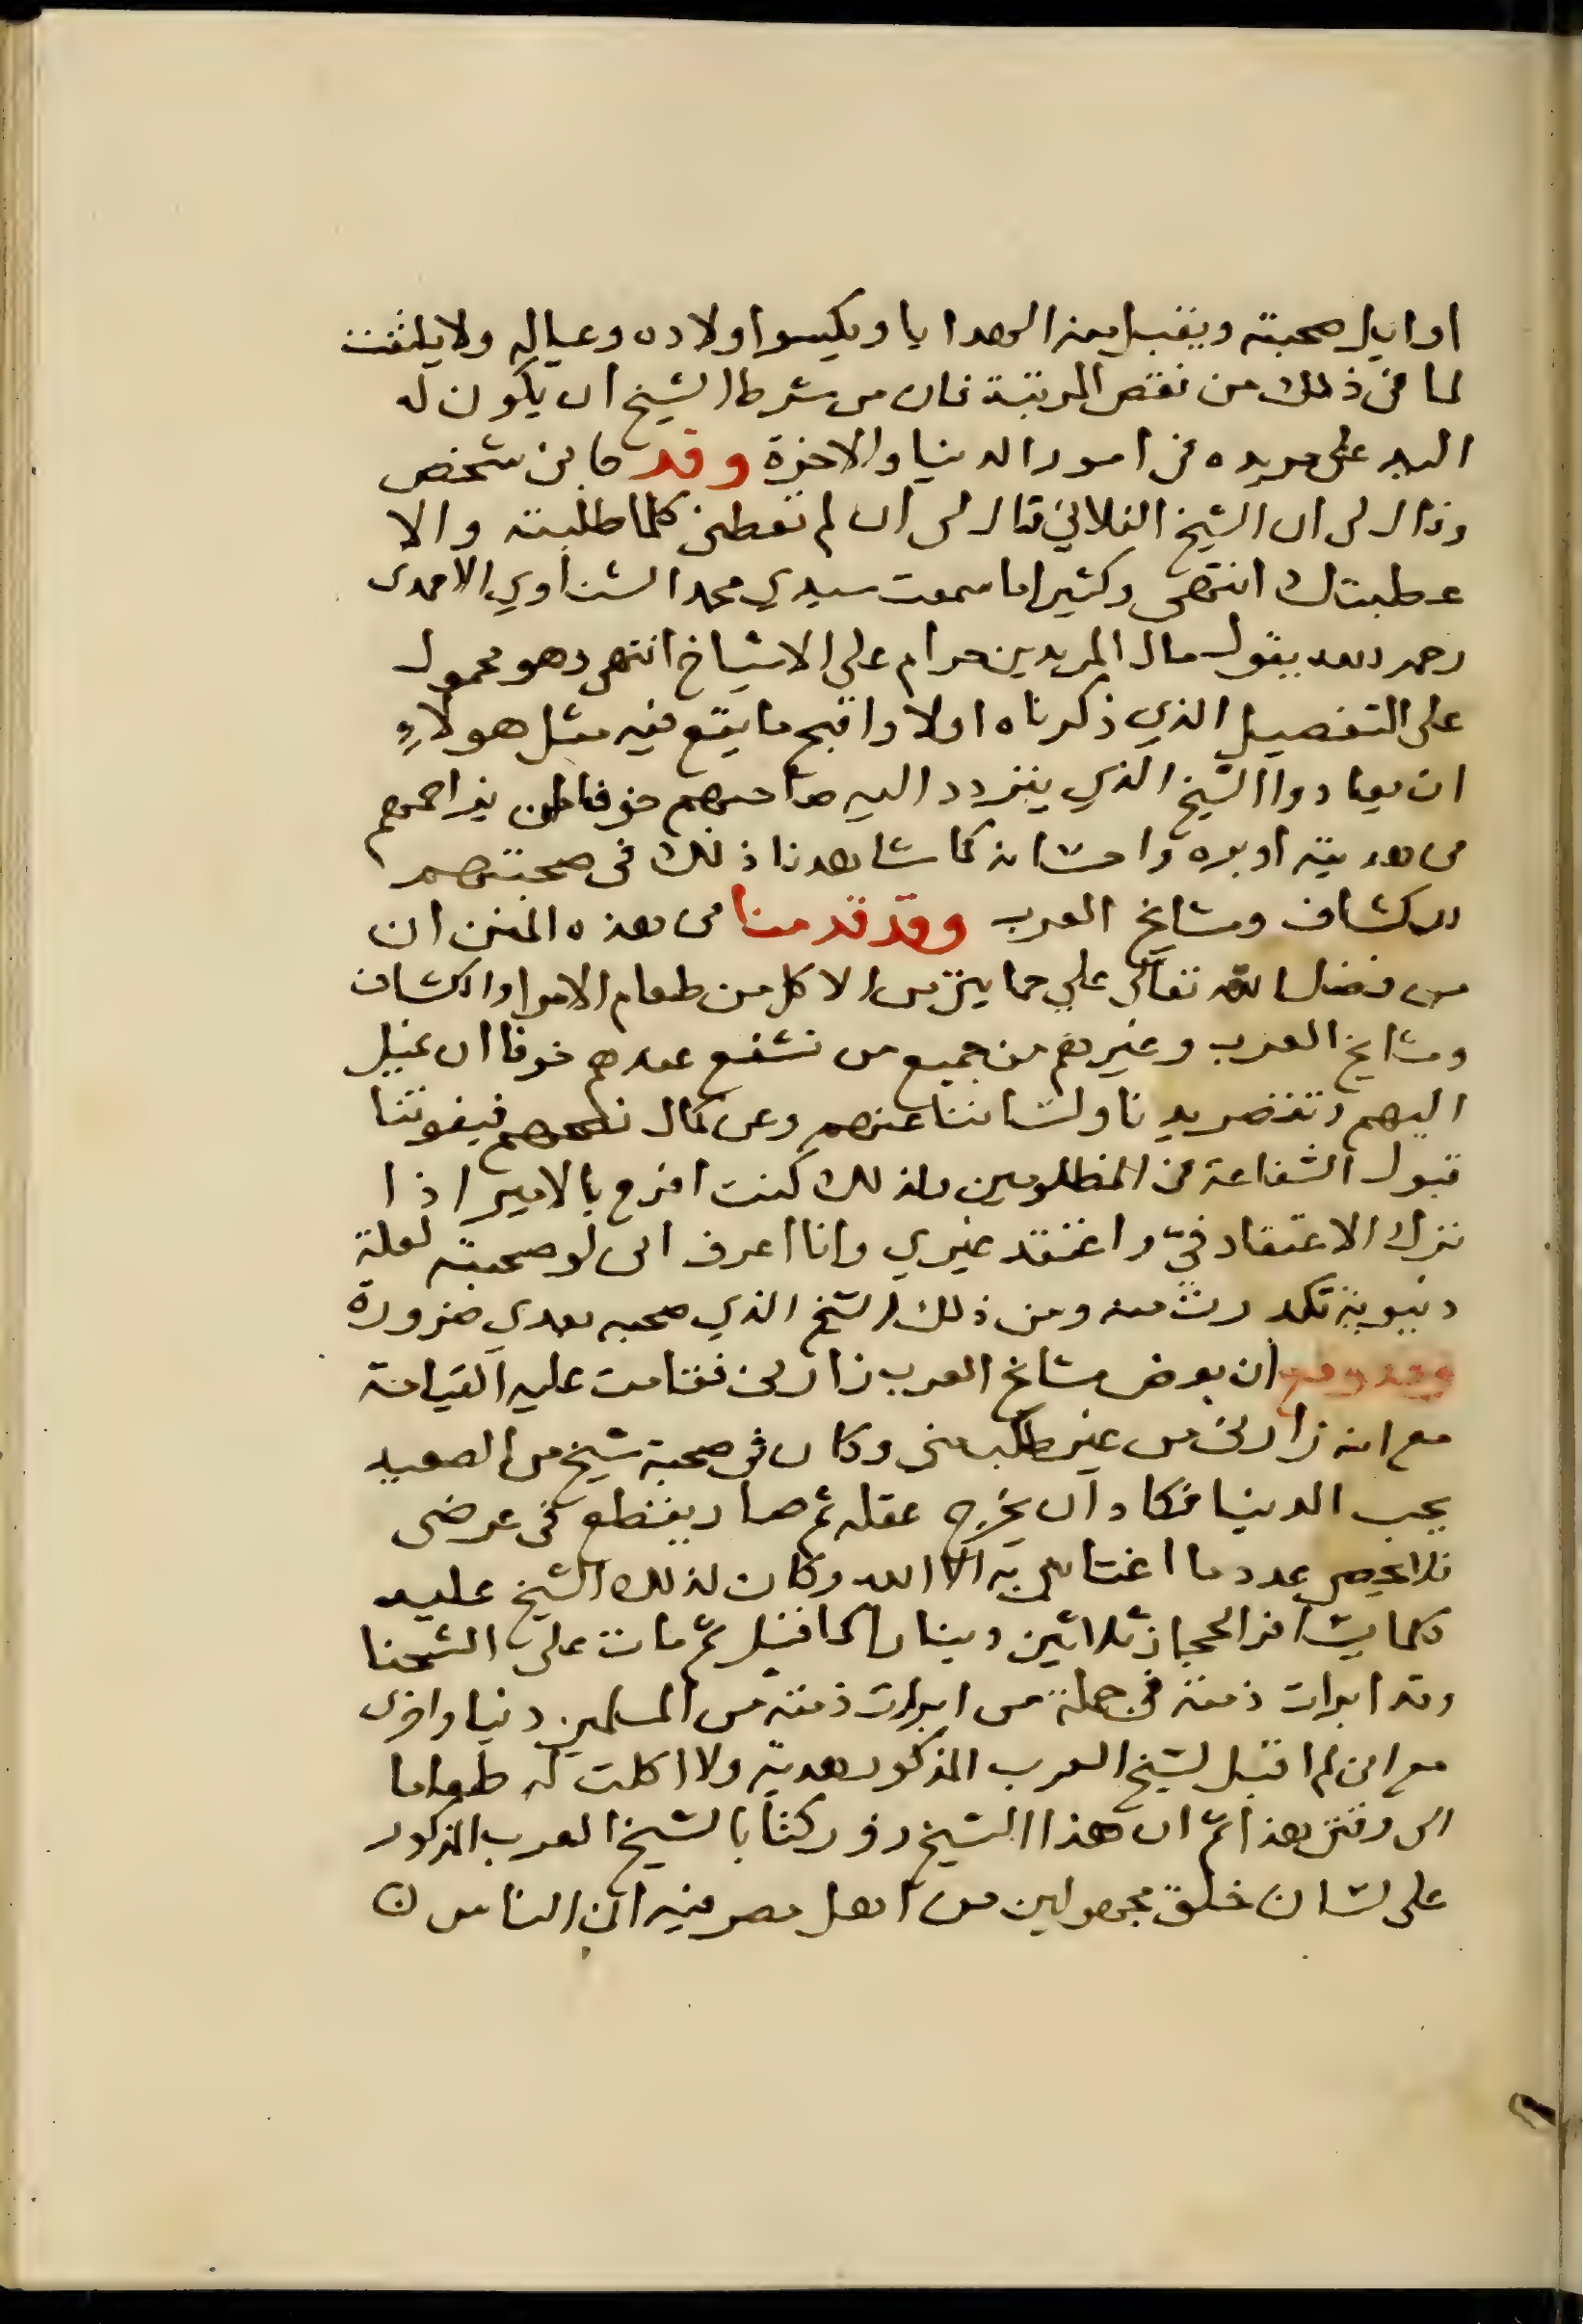 اوايل صحبته ويقبل منه الهدايا ويكسوا اولاده وعياله ولا يلتفت
لما في ذلك من نقص المرتبة فان من شرط الشيخ ان يكون له
اليد على مريده في امور الدنيا والاخرة وقد جانى شخص
وقال لى ان الشيخ الفلاني قال لى ان لم تعطنى كلما طلبته والا
عطبتك انتهى وكثيرا ما سمعت سيدي محمد الشناوي الاحمدى
رحمه الله يقول مال المريدين حرام على الاشياخ انتهى وهو محمول
على التفصيل الذي ذكرناه اولا واقبح ما يقع فيه مثل هولاءِ
ان يعادوا الشيخ الذي يتردد اليه صاحبهم خوفا ان يزاحمهم
فى هديته او بره واحسانه كما شاهدنا ذلك فى صحبتهم
الكشاف ومشايخ العرب وقد قدمنا فى هذه المنن ان
من فضل الله تعالى علي حمايتى من الاكل من طعام الامرا والكشاف
ومشايخ العرب وغيرهم من جميع من نشفع عندهم خوفا ان نميل
اليهم وتقصر يدنا ولساننا عنهم وعن كمال نصحهم فيفوتنا
قبول الشفاعة فى المظلومين ولذلك كنت افرح بالامير اذا
ترك الاعتقاد فيّ واعتقد غيري وانا اعرف انى لو صحبته لعلة
دنيوية تكدرت منه ومن ذلك الشيخ الذي صحبه بعدي ضرورة
وقد وقع ان بعض مشايخ العرب زارنى فقامت عليه القيامة
مع انه زارنى من غير طلب منى وكان فى صحبة شيخ من الصعيد
يحب الدنيا فكاد ان يخرج عقله ثم صار يقطع فى عرضى
فلا يحصى عدد ما اغتابنى به الا الله وكان لذلك الشيخ عليه
كلما يسافر الحجاز ثلاثين دينارا كما قيل ثم مات على الشحنا
وقد ابرات ذمته فى جملة من ابرات ذمته من المسلمين دنيا واخرى
مع انى لم اقبل لشيخ العرب المذكور هدية ولا اكلت له طعاما
الى وقتى هذا ثم ان هذا الشيخ زور كتابا لشيخ العرب المذكور
على لسان خلق مجهولين من اهل مصر فيه ان الناس